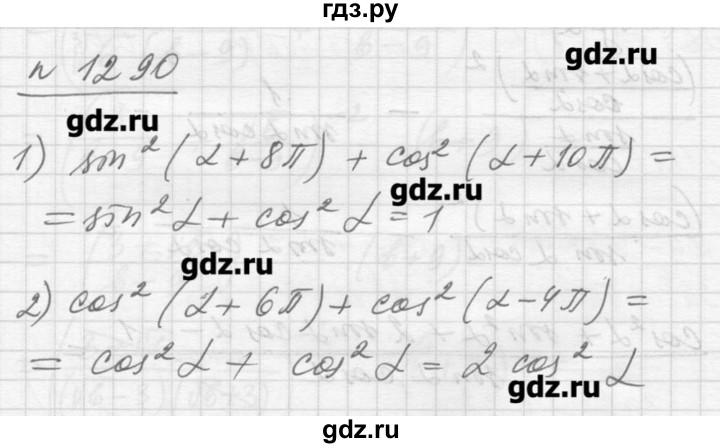 гдз.ру
gdz.ru
n 1290
gdz.ru
1) sin² (α + 8π) + cos² (α + 10π) =
gdz.ru
= sin² α + cos² α = 1
gdz.ru
2) cos² (α + 6π) + cos² (α - 4π) =
= cos² α + cos² α = 2 cos² α
gdz.ru
gdz.ru